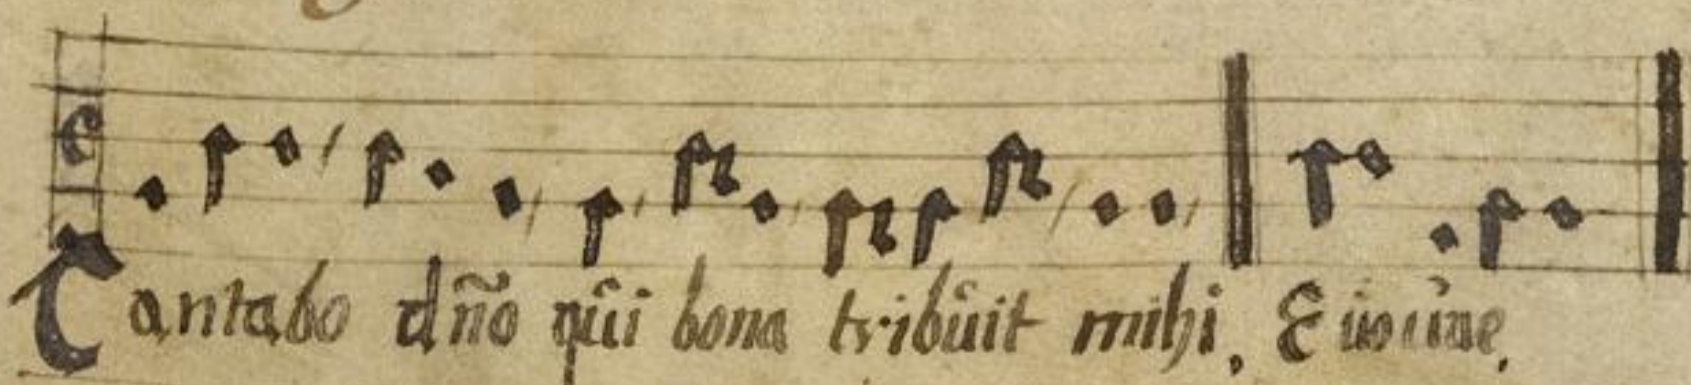 Cantabo dño qui bona tribuit mihi. Euouae.